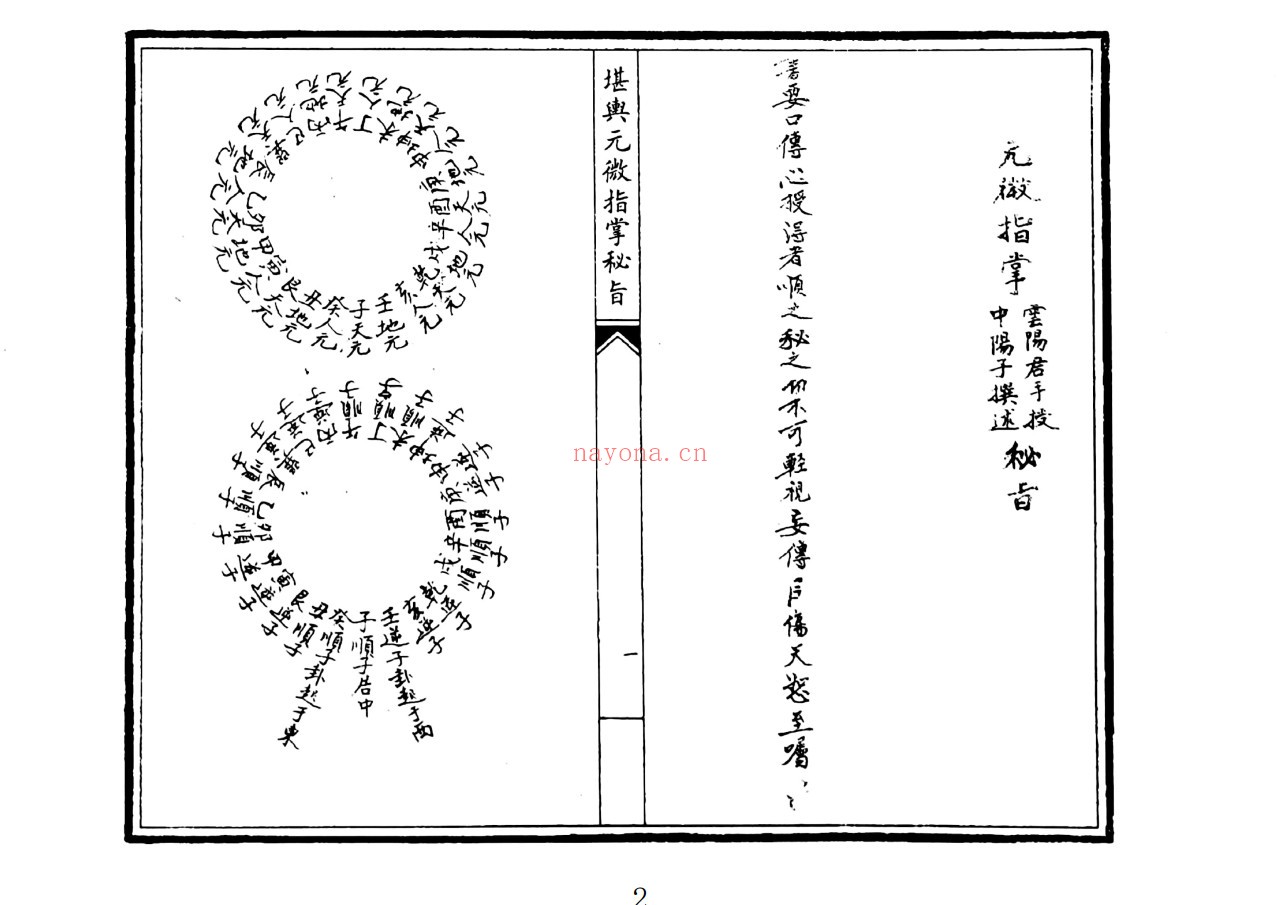 元微指掌
雲陽君手授
中陽子撰述
秘旨
要口傳心授得者順之秘之切不可輕視妄傳自傷天怒至囑
堪輿元微指掌秘旨
一
壬地元
子天元
癸人元
丑地元
艮天元
寅人元
甲地元
卯天元
乙人元
辰地元
巽天元
巳人元
丙地元
午天元
丁人元
未地元
坤天元
申人元
庚地元
酉天元
辛人元
戌地元
乾天元
亥人元
壬逆子卦起于西
子順子居中
癸順子卦起于東
丑順子
艮逆子
寅逆子
甲逆子
卯順子
乙順子
辰順子
巽逆子
巳逆子
丙逆子
午順子
丁順子
未順子
坤逆子
申逆子
庚逆子
酉順子
辛順子
戌順子
乾逆子
亥逆子
nayona.cn
2